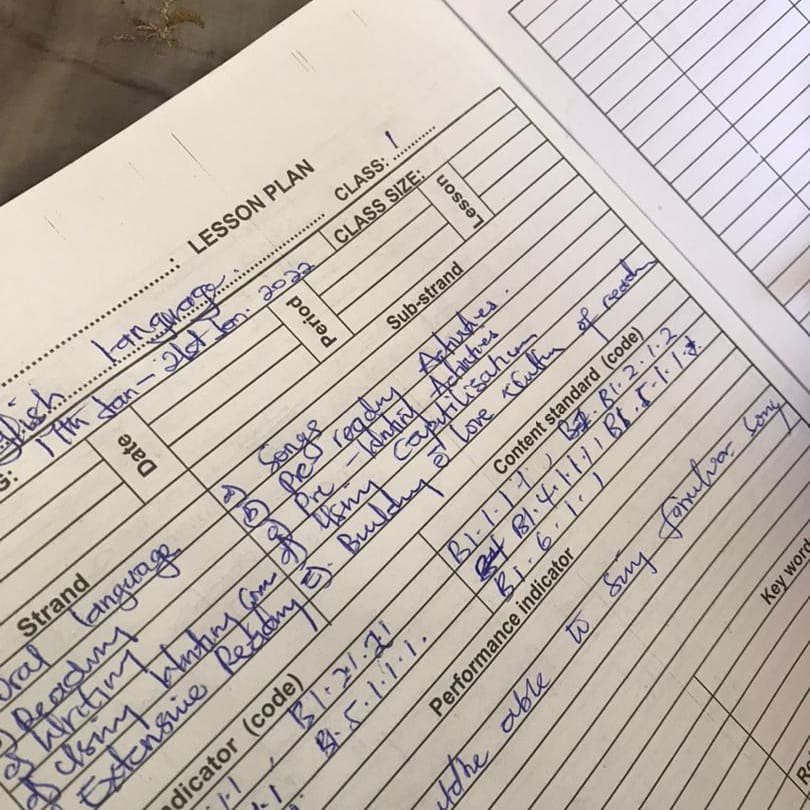 LESSON PLAN
English Language
CLASS: 1
17th Jan – 21st Jan. 2022
CLASS SIZE:
G:
Date
Period
Lesson
Strand
Sub-strand
Oral Language
Reading
Writing
Using Writing Con
Extensive Reading
a) Songs
b) Pre-reading Activities.
c) Pre-Writing Activities
d) Using Capitilisation
e). Building of love of readi
Content standard (code)
B1.1.1.1, B1.2.1.2
B1.4.1.1, B1.5.1.1.
B1.6.1.1
ndicator (code)
B1.2.1.2.1
B1.5.1.1.1.
Performance indicator
able to sing familiar song
Key word